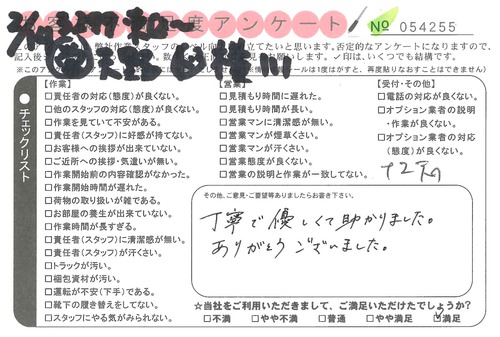 度アンケート
No 054255
チェックリスト
【作業】
□責任者の対応(態度)が良くない。
□他のスタッフの対応(態度)が良くない。
□作業を見ていて不安がある。
□責任者(スタッフ)に好感が持てない。
□お客様への挨拶が出来ていない。
□ご近所への挨拶・気遣いが無い。
□作業開始前の内容確認がなかった。
□作業開始時間が遅れた。
□荷物の取り扱いが雑である。
□お部屋の養生が出来ていない。
□作業時間が長すぎる。
□責任者(スタッフ)に清潔感が無い。
□責任者(スタッフ)が汗くさい。
□トラックが汚い。
□梱包資材が汚い。
□運転が不安(下手)である。
□靴下の履き替えをしてない。
□スタッフにやる気がみられない。
【営業】
□見積もり時間に遅れた。
□見積もり時間が長い。
□営業マンに清潔感が無い。
□営業マンが煙草くさい。
□営業マンが汗くさい。
□営業態度が良くない。
□営業の説明と作業が一致してない。
【受付・その他】
□電話の対応が良くない。
□オプション業者の説明
・作業が良くない。
□オプション業者の対応
(態度)が良くない。
その他、ご意見・ご要望等ありましたらお書き下さい。
丁寧で優しくて助かりました。
ありがとうございました。
☆当社をご利用いただきまして、ご満足いただけたでしょうか?
□不満 □やや不満 □普通 □やや満足 ☑満足